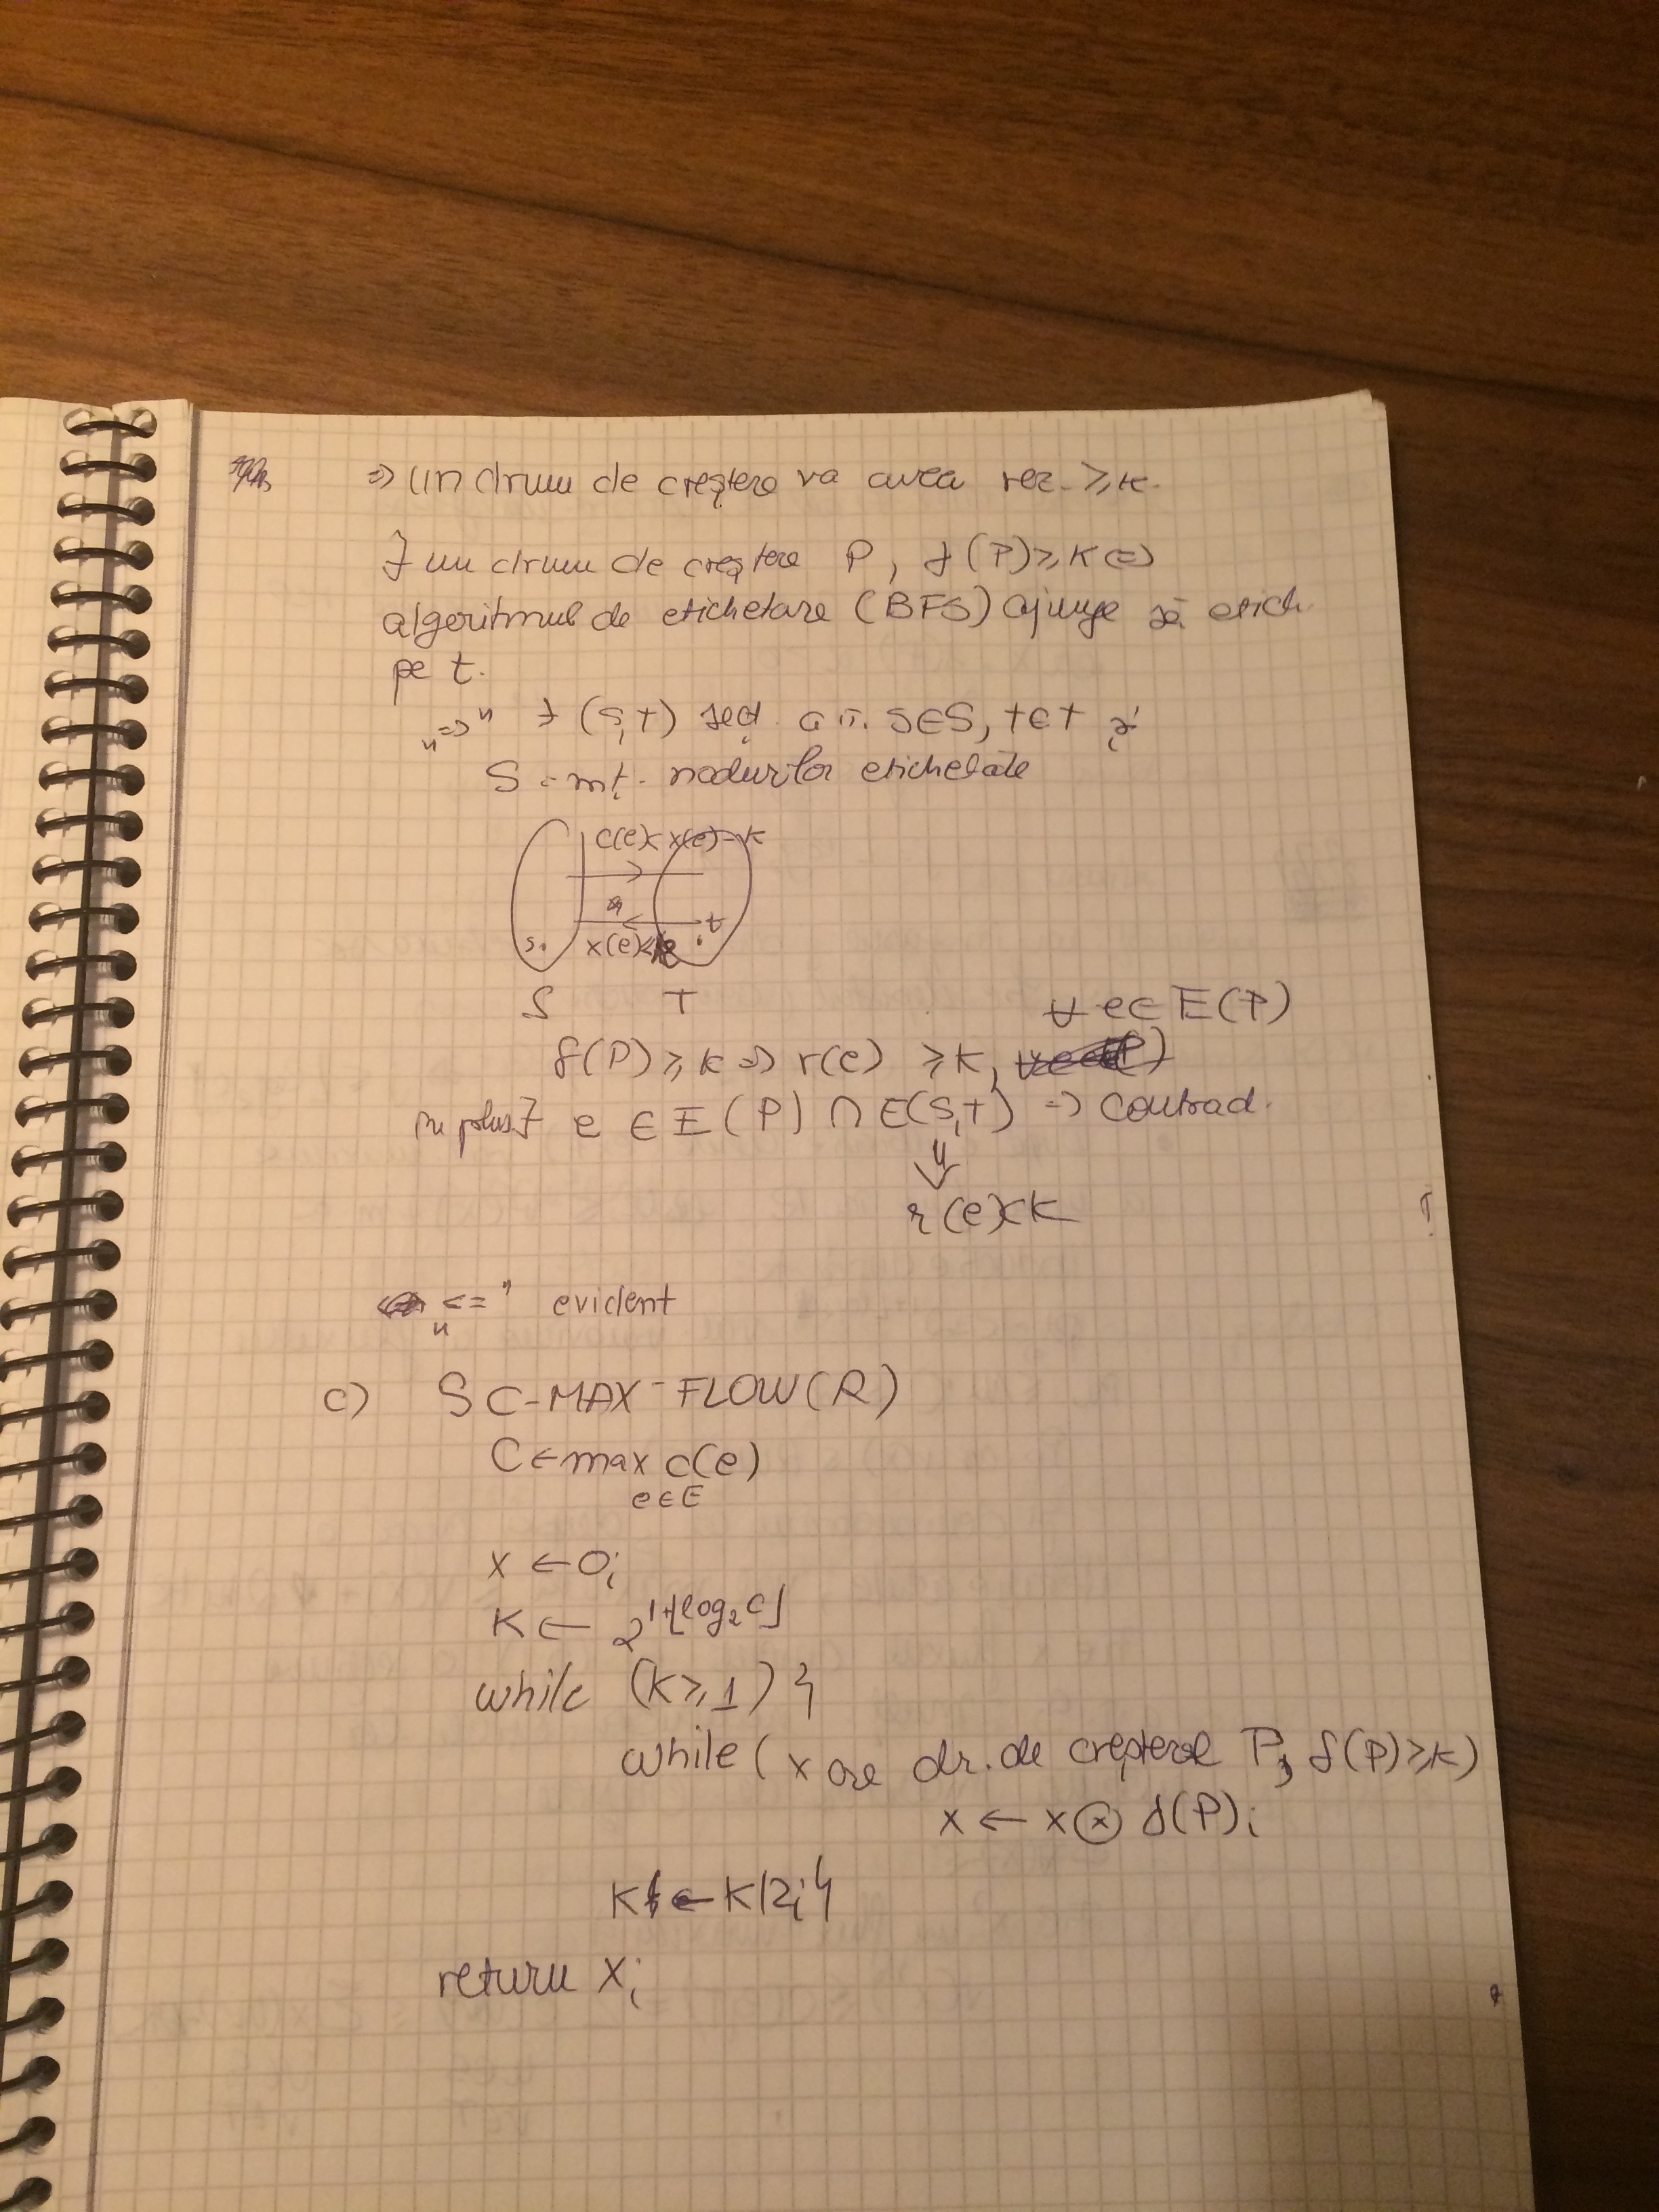 => un drum de creștere va avea rez. ≥ k.
∃ un drum de creștere P, δ(P) ≥ k (=)
algoritmul de etichetare (BFS) ajunge să etich.
pe t.
„=>" ∃ (S,T) secț. a.î. s∈S, t∈T și
S = mț. nodurilor etichetate
c(e) < x(e) + k
s. x(e)<k t
S T
∀ e∈E(P)
δ(P) ≥ k => r(e) ≥ k,
în plus ∃ e ∈ E(P) ∩ E(S,T) => contrad.
⇓
r(e)<k
„<=" evident
c) SC-MAX-FLOW(R)
C ← max c(e)
e∈E
x ← 0;
K ← 2^{1+⌊log₂C⌋}
while (K ≥ 1) {
while (x are dr. de creștere P, δ(P) ≥ K)
x ← x ⊗ δ(P);
K ← K/2; }
return x;